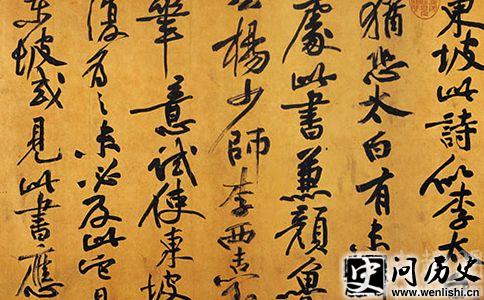 東坡此詩似李太
猶恐太白有未
處此書兼顏魯
公楊少師李西臺
筆意試使東坡
復為之未必及此它日
東坡或見此書應
史 问历史
www.wenlishi.cn